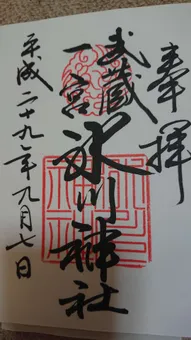 奉拝
武蔵
一宮
氷川神社
平成二十九年九月七日